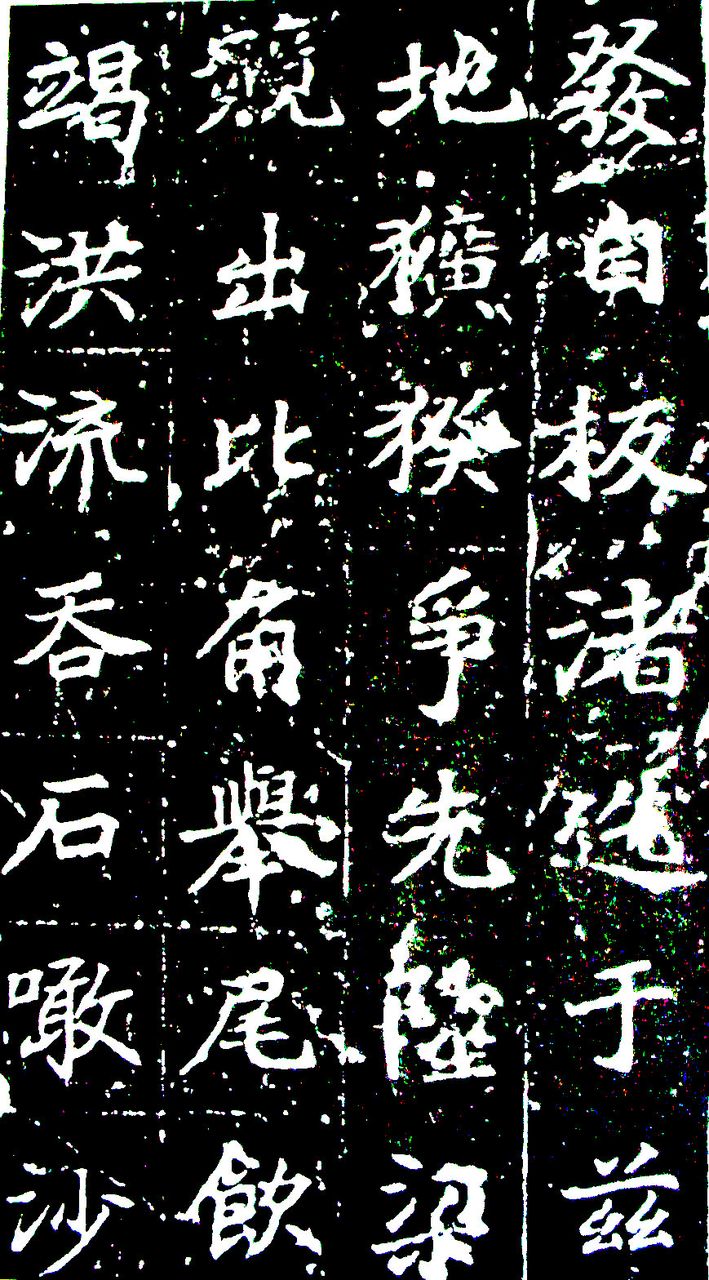 發自板渚于茲
地獷猤爭先陸梁
競出比角舉尾飲
竭洪流吞石噉沙